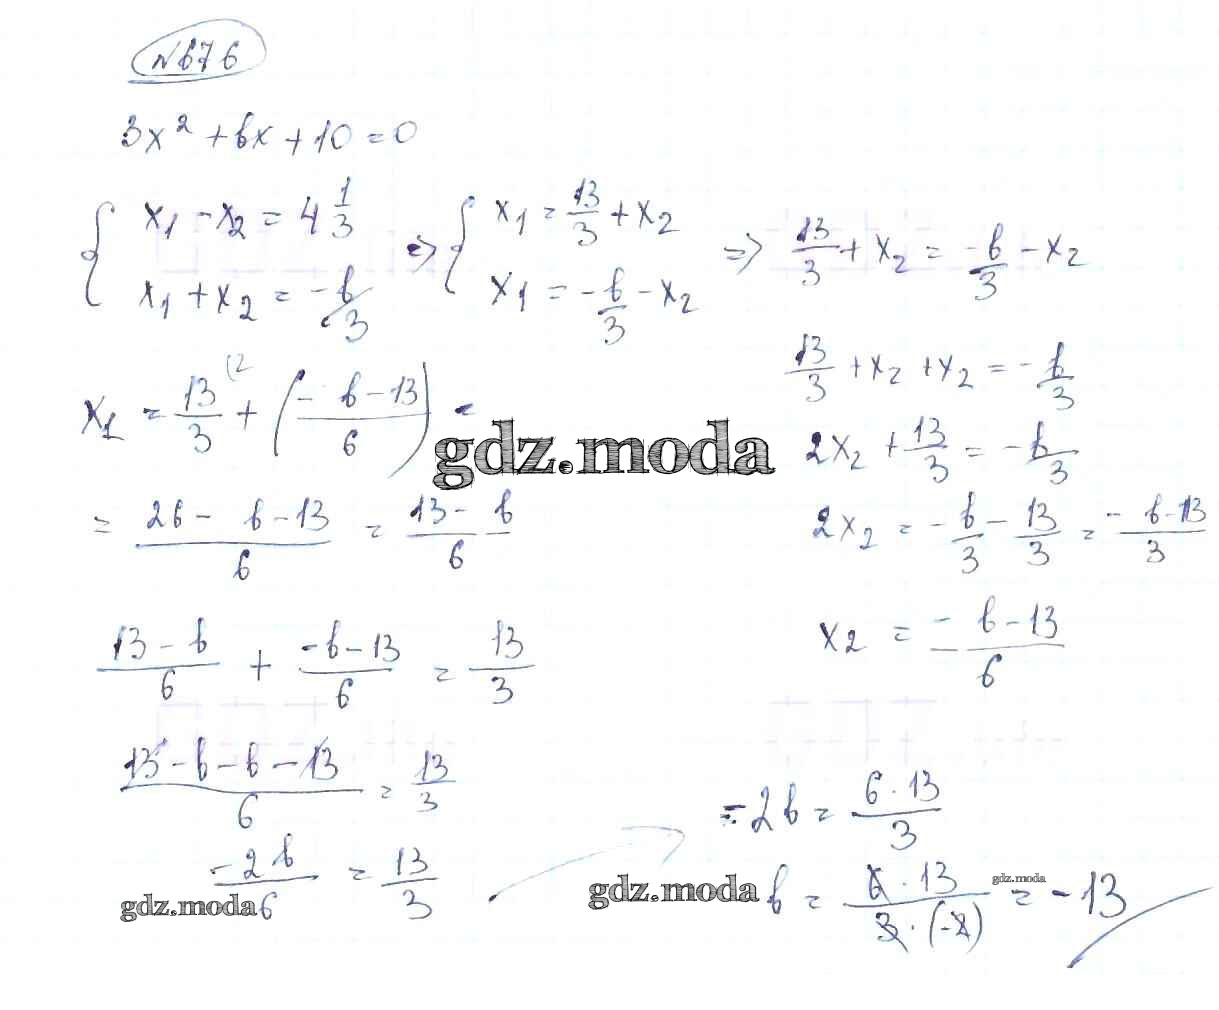 №676
3x² + bx + 10 = 0
{ x₁ - x₂ = 4 1/3
{ x₁ + x₂ = -b/3
=> { x₁ = 13/3 + x₂
{ x₁ = -b/3 - x₂
=> 13/3 + x₂ = -b/3 - x₂
13/3 + x₂ + x₂ = -b/3
2x₂ + 13/3 = -b/3
2x₂ = -b/3 - 13/3 = (-b-13)/3
x₂ = (-b-13)/6
x₁ = 13/3 (2 + ((-b-13)/6) =
= (26-b-13)/6 = (13-b)/6
(13-b)/6 + (-b-13)/6 = 13/3
(13-b-b-13)/6 = 13/3
-2b/6 = 13/3
-2b = (6·13)/3
b = (6·13)/(3·(-2)) = -13
gdz.moda
gdz.moda
gdz.moda
gdz.moda